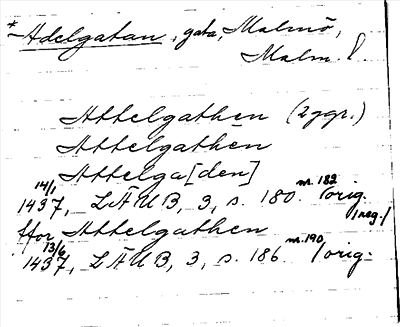 *Adelgatan, gata, Malmö,
Malm. l.
Attelgathen (2 ggr.)
Attelgathen
Attelga[den]
14/1 1437, LÄUB, 3, s. 180 nr. 182 /orig.
1 neg./
ffor Attelgathen
13/6 1437, LÄUB, 3, s. 186 nr. 190 /orig.